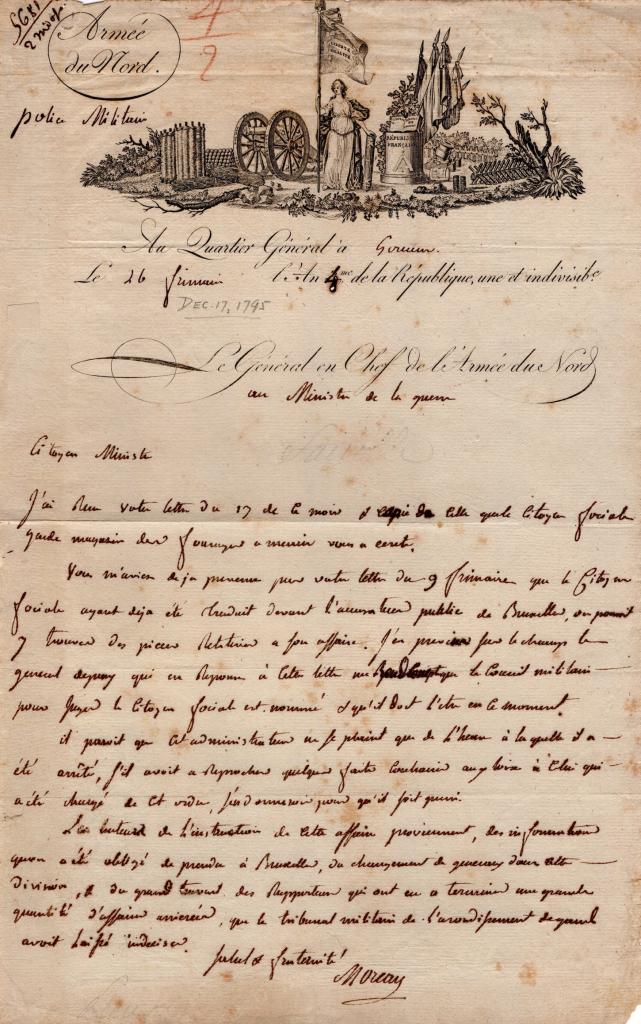 5681
2 
4
2
Armée
du Nord.
police Militaire
LIBERTÉ
RÉPUBLIQUE
FRANÇAISE
Au Quartier Général à
Le 26 frimaire l'An 4me de la République, une et indivisible
DEC. 17, 1795
Le Général en Chef de l'Armée du Nord
au Ministre de la guerre
Citoyen Ministre
J'ai Reçu votre lettre du 17 de ce mois et copie de celle que le Citoyen fociale
garde magasin des fourages a vous a ecrit.
Vous m'aviez deja prevenu par votre lettre du 9 frimaire que le Citoyen
fociale ayant deja été traduit devant l'accusateur public de Bruxelles, on pouroit
y trouver des pieces Relatives a son affaire. J'en previns sur le champ le
general qui en Reponse à cette lettre le Conseil militaire
pour juger le Citoyen fociale est nommé et qu'il doit l'etre en ce moment.
il paroit que cet administrateur ne se plaint que de l'heure à laquelle il a
été arrêté, s'il avoit a Reprocher quelque faute contraire aux loix à celui qui
a été chargé de cet ordre, j'ordonnerois pour qu'il soit puni.
Les de l'instruction de cette affaire proviennent, des informations
qu'on a été obligé de prendre à Bruxelles, du changement de generaux dans cette
division, et du grand travail des Rapporteurs qui ont eu a terminer une grande
quantité d'affaires arrierées, que le tribunal militaire de l'arondissement de gand
avoit laissé indecises.
salut & fraternité
Moreau